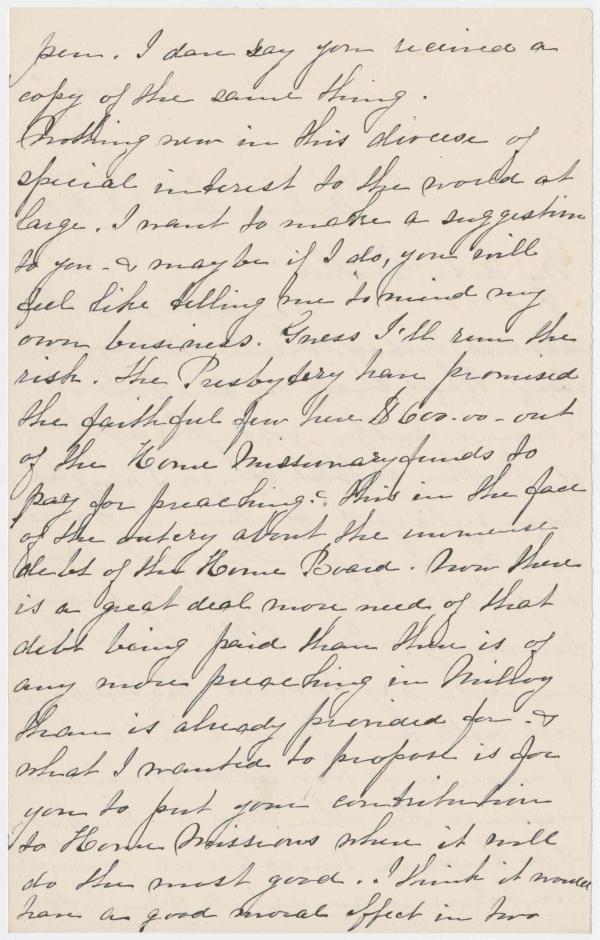 pen. I dare say you received a
copy of the same thing.
Nothing new in this diocese of
special interest to the world at
large. I want to make a suggestion
to you - & maybe if I do, you will
feel like telling me "to mind my
own business. Guess I'll run the
risk. The Presbytery have promised
the faithful few here $600.00 - out
of the Home Missionary funds to
pay for preaching & this in the face
of the outcry about the immense
debt of the Home Board. Now there
is a great deal more need of that
debt being paid than there is of
any more preaching in Milroy
than is already provided for - &
what I wanted to propose is for
you to put your contribution
to Home Missions where it will
do the most good. I think it would
have a good moral effect in two